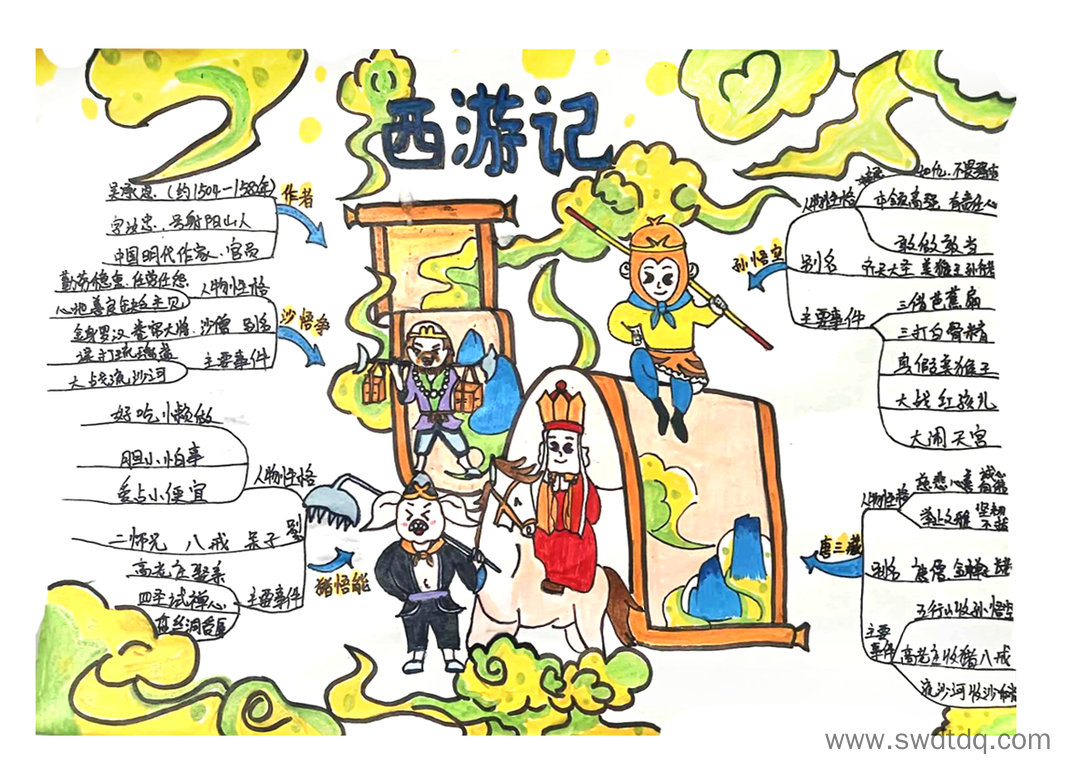 西游记
作者
吴承恩 (约1504-1582年)
字汝忠、号射阳山人
中国明代作家、官员
沙悟净
人物性格
勤劳稳重、任劳任怨
心地善良
别名
金身罗汉 卷帘大将、沙僧
主要事件
误打
大战流沙河
猪悟能
人物性格
好吃小懒做
胆小怕事
贪占小便宜
别
二师兄 八戒 呆子
主要事件
高老庄娶亲
四圣试禅心
盘丝洞
孙悟空
人物性格
不畏强
本领高强 有责任心
敢做敢当
别名
齐天大圣 美猴王 孙
主要事件
三借芭蕉扇
三打白骨精
真假美猴王
大战红孩儿
大闹天宫
唐三藏
人物性格
慈悲心善 诚
文雅 坚韧不
别名
唐僧 金蝉
主要事件
五行山收孙悟空
高老庄收猪八戒
流沙河收沙
www.swdtdq.com